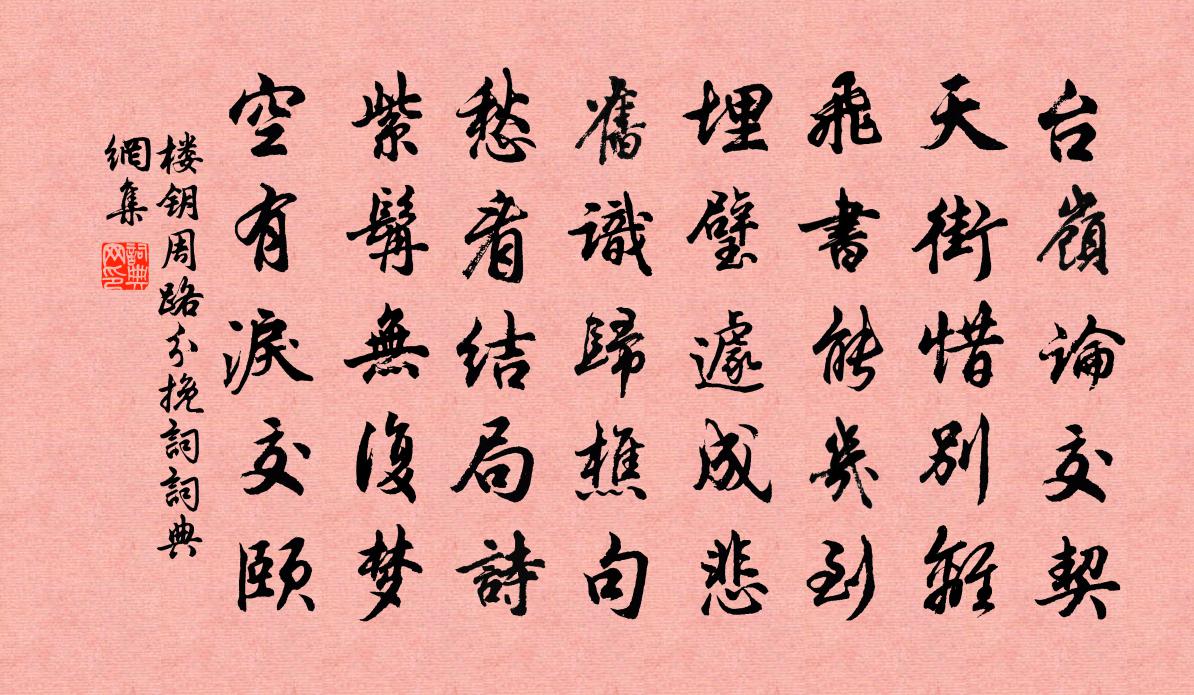 台嶺論交契
天街惜別離
飛書能幾到
埋璧遽成悲
舊識歸樵句
愁看結局詩
紫髯無復夢
空有淚交頤
楼钥周路分挽詞詞典
網集
詞典網印